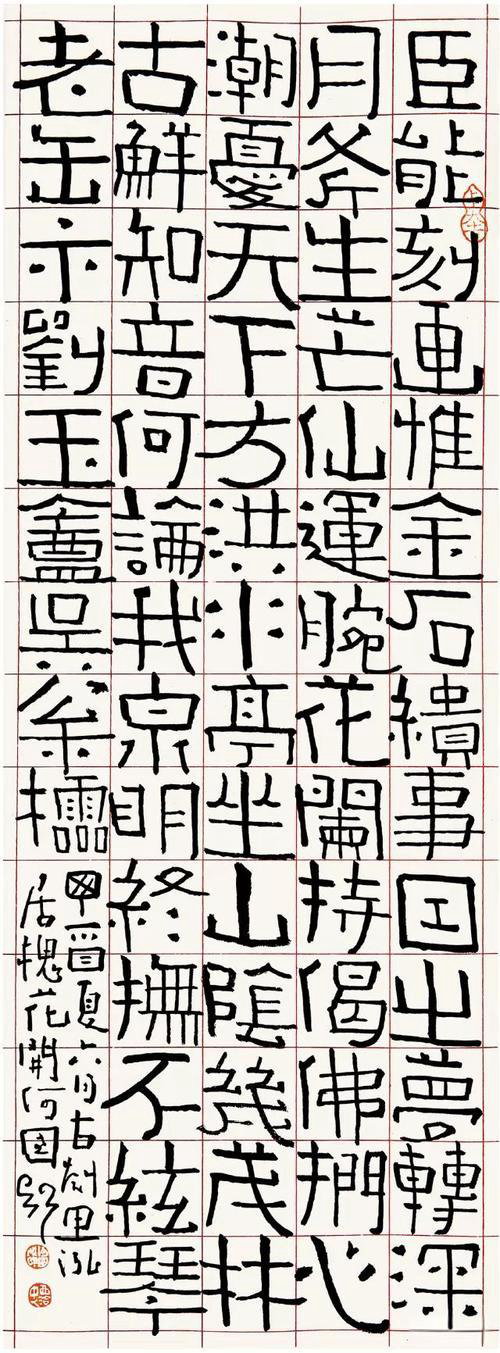 臣能刻画惟金石繢事因之夢轉深
月斧生芒仙運腕花闌持偈佛捫心
潮憂天下方洪水亭坐山陰幾茂林
古鮮知音何論我泉明終撫不絃琴
老缶示劉玉盦吳
夏六月古
居槐花開何園